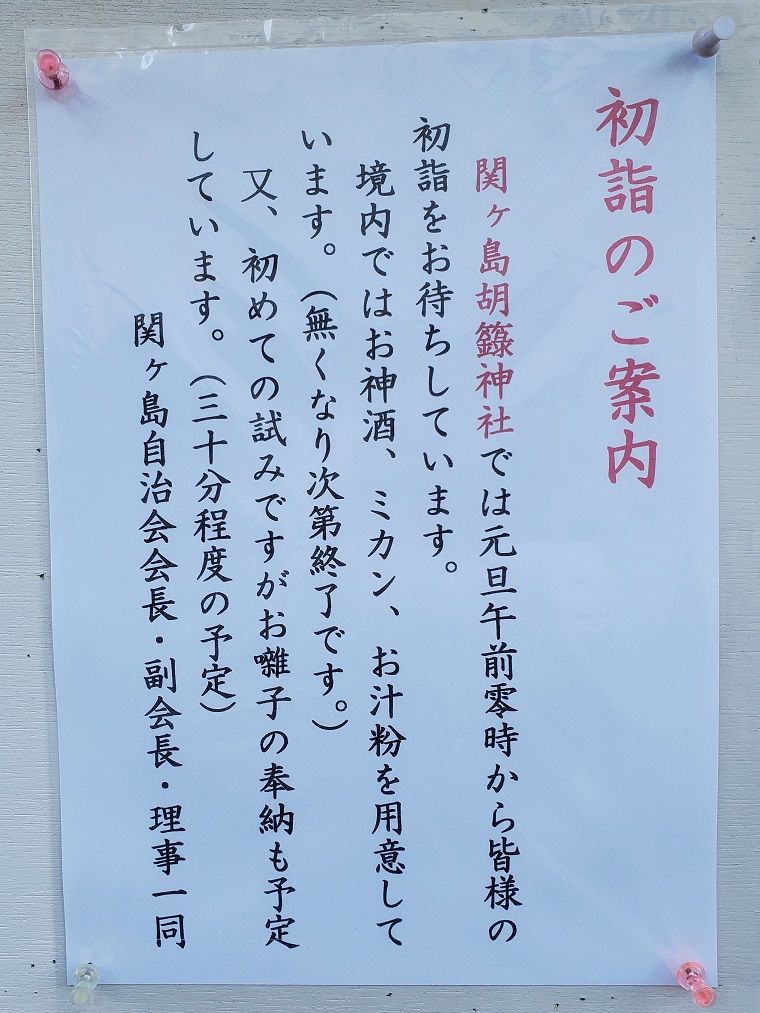 初詣のご案内
関ヶ島胡籙神社では元旦午前零時から皆様の
初詣をお待ちしています。
境内ではお神酒、ミカン、お汁粉を用意して
います。（無くなり次第終了です。）
又、初めての試みですがお囃子の奉納も予定
しています。（三十分程度の予定）
関ヶ島自治会会長・副会長・理事一同